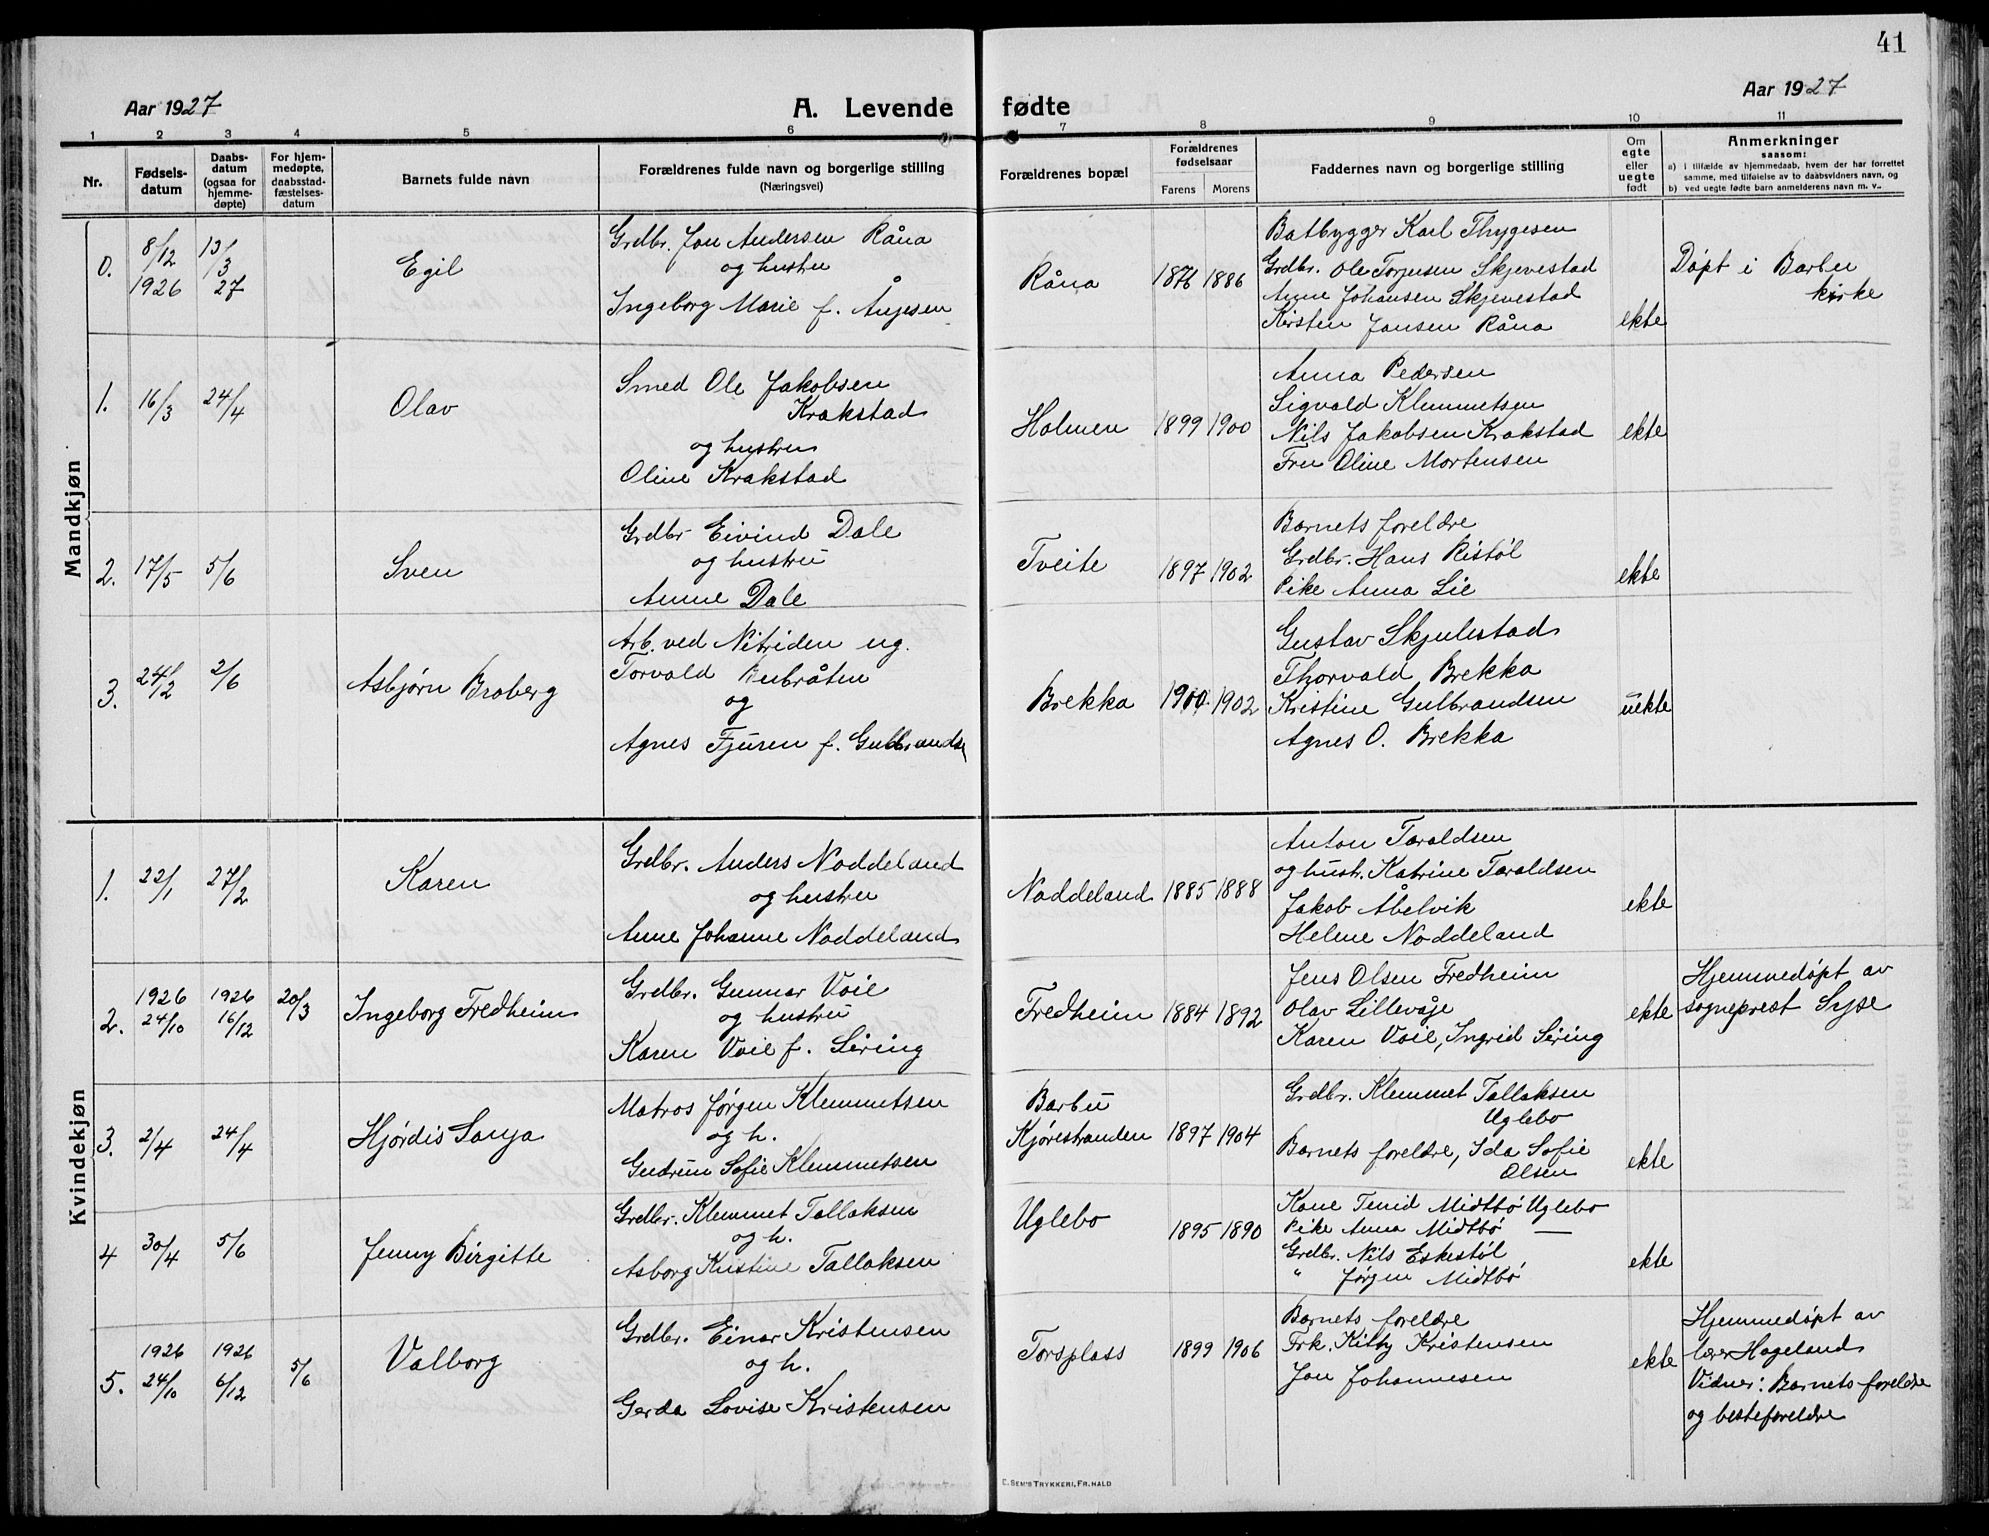 41
Aar 1927
A. Levende fødte
Aar 1927
1 2 3 4 5 6 7 8 9 10 11
Nr.
Fødsels-
datum
Daabs-
datum
(ogsaa for
hjemme-
døpte)
For hjem-
medøpte,
daabsstad-
fæstelses-
datum
Barnets fulde navn
Forældrenes fulde navn og borgerlige stilling
(Næringsvei)
Forældrenes bopæl
Forældrenes
fødselsaar
Farens Morens
Faddernes navn og borgerlige stilling
Om
egte
eller
uegte
født
Anmerkninger
saasom:
a) i tilfælde av hjemmedaab, hvem der har forrettet
samme, med tilføielse av to daabsvidners navn, og
b) ved uegte fødte barn anmelderens navn m. v..
Mandkjøn
0.
8/12
1926
13/3
27
Egil
Grdbr. Jon Andersen Råna
og hustru
Ingeborg Marie f. Ånjesen
Råna
1876 1886
Båtbygger Karl Thygesen
Grdbr. Ole Torjusen Skjevestad
Anne Johansen Skjevestad
Kirsten Jansen Råna
ekte
Døpt i Barbu
kirke
1.
16/3
24/4
Olav
Smed Ole Jakobsen
Krakstad
og hustru
Oline Krakstad
Holmen
1899 1900
Anna Pedersen
Sigvald Klemmetsen
Nils Jakobsen Krakstad
Fru Oline Mortensen
ekte
2.
17/5
5/6
Sven
Grdbr Eivind Dale
og hustru
Anne Dale
Tveite
1897 1902
Barnets foreldre
Grdbr. Hans Ristøl
Pike Anna Lie
ekte
3.
24/2
2/6
Asbjørn Broberg
Arb. ved Nitriden ug.
Torvald Bubråten
og
Agnes Tjuren f. Gulbrands
Brekka
1900. 1902
Gustav Skjulestad
Thorvald Brekka
Kristine Gulbrandsen
Agnes O. Brekka
uekte
Kvindekjøn
1.
22/1
27/2
Karen
Grdbr. Anders Noddeland
og hustru
Anne Johanne Noddeland
Noddeland
1885 1888
Anton Taraldsen
og hustr. Katrine Taraldsen
Jakob Åbelvik
Helene Noddeland
ekte
2.
1926
24/10
1926
16/12
20/3
Ingeborg Fredheim
Grdbr. Gunnar Voie
og hustru
Karen Voie f. Liring
Fredheim
1884 1892
Jens Olsen Fredheim
Olav Lillevåje
Karen Voie, Ingrid Liring
ekte
Hjemmedøpt av
sogneprest Syse
3.
2/4
24/4
Hjørdis Sonja
Matros Jørgen Klemmetsen
og h.
Gudrun Sofie Klemmetsen
Barbu
Kjørestranden
1897 1904
Grdbr. Klemmet Tallaksen
Uglebo
Barnets foreldre, Ida Sofie
Olsen
ekte
4
30/4
5/6
Jenny Birgitte
Grdbr. Klemmet Tallaksen
og h.
Asborg Kristine Tallaksen
Uglebo
1895 1890
Kone Tenid Midtbø Uglebo
Pike Anna Midtbø —
Grdbr. Nils Eskestøl
" Jørgen Midtbø
ekte
5.
1926
24/10
1926
6/12
5/6
Valborg
Grdbr. Einar Kristensen
og h.
Gerda Lovise Kristensen
Torsplass
1899 1906
Barnets foreldre
Frk. Kitty Kristensen
Jon Johannesen
ekte
Hjemmedøpt av
lærer Hageland
Vidner: Barnets foreldre
og besteforeldre
C. SEM'S TRYKKERI, FR.HALD